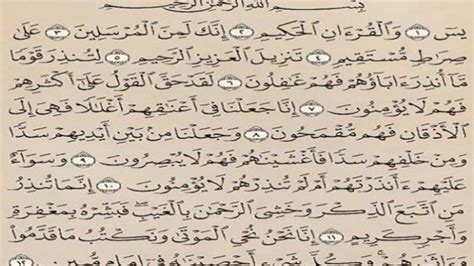 بِسْمِ اللَّهِ الرَّحْمَٰنِ الرَّحِيمِ
يسٓ ١ وَالْقُرْءَانِ الْحَكِيمِ ٢ إِنَّكَ لَمِنَ الْمُرْسَلِينَ ٣ عَلَىٰ
صِرَٰطٍ مُّسْتَقِيمٍ ٤ تَنزِيلَ الْعَزِيزِ الرَّحِيمِ ٥ لِتُنذِرَ قَوْمًا
مَّآ أُنذِرَ ءَابَآؤُهُمْ فَهُمْ غَٰفِلُونَ ٦ لَقَدْ حَقَّ الْقَوْلُ عَلَىٰٓ أَكْثَرِهِمْ
فَهُمْ لَا يُؤْمِنُونَ ٧ إِنَّا جَعَلْنَا فِىٓ أَعْنَٰقِهِمْ أَغْلَٰلًا فَهِىَ إِلَى
الْأَذْقَانِ فَهُم مُّقْمَحُونَ ٨ وَجَعَلْنَا مِنۢ بَيْنِ أَيْدِيهِمْ سَدًّا
وَمِنْ خَلْفِهِمْ سَدًّا فَأَغْشَيْنَٰهُمْ فَهُمْ لَا يُبْصِرُونَ ٩ وَسَوَآءٌ
عَلَيْهِمْ ءَأَنذَرْتَهُمْ أَمْ لَمْ تُنذِرْهُمْ لَا يُؤْمِنُونَ ١٠ إِنَّمَا تُنذِرُ
مَنِ اتَّبَعَ الذِّكْرَ وَخَشِىَ الرَّحْمَٰنَ بِالْغَيْبِ فَبَشِّرْهُ بِمَغْفِرَةٍ
وَأَجْرٍ كَرِيمٍ ١١ إِنَّا نَحْنُ نُحْىِ الْمَوْتَىٰ وَنَكْتُبُ مَا قَدَّمُوا
وَءَاثَٰرَهُمْ وَكُلَّ شَىْءٍ أَحْصَيْنَٰهُ فِىٓ إِمَامٍ مُّبِينٍ ١٢